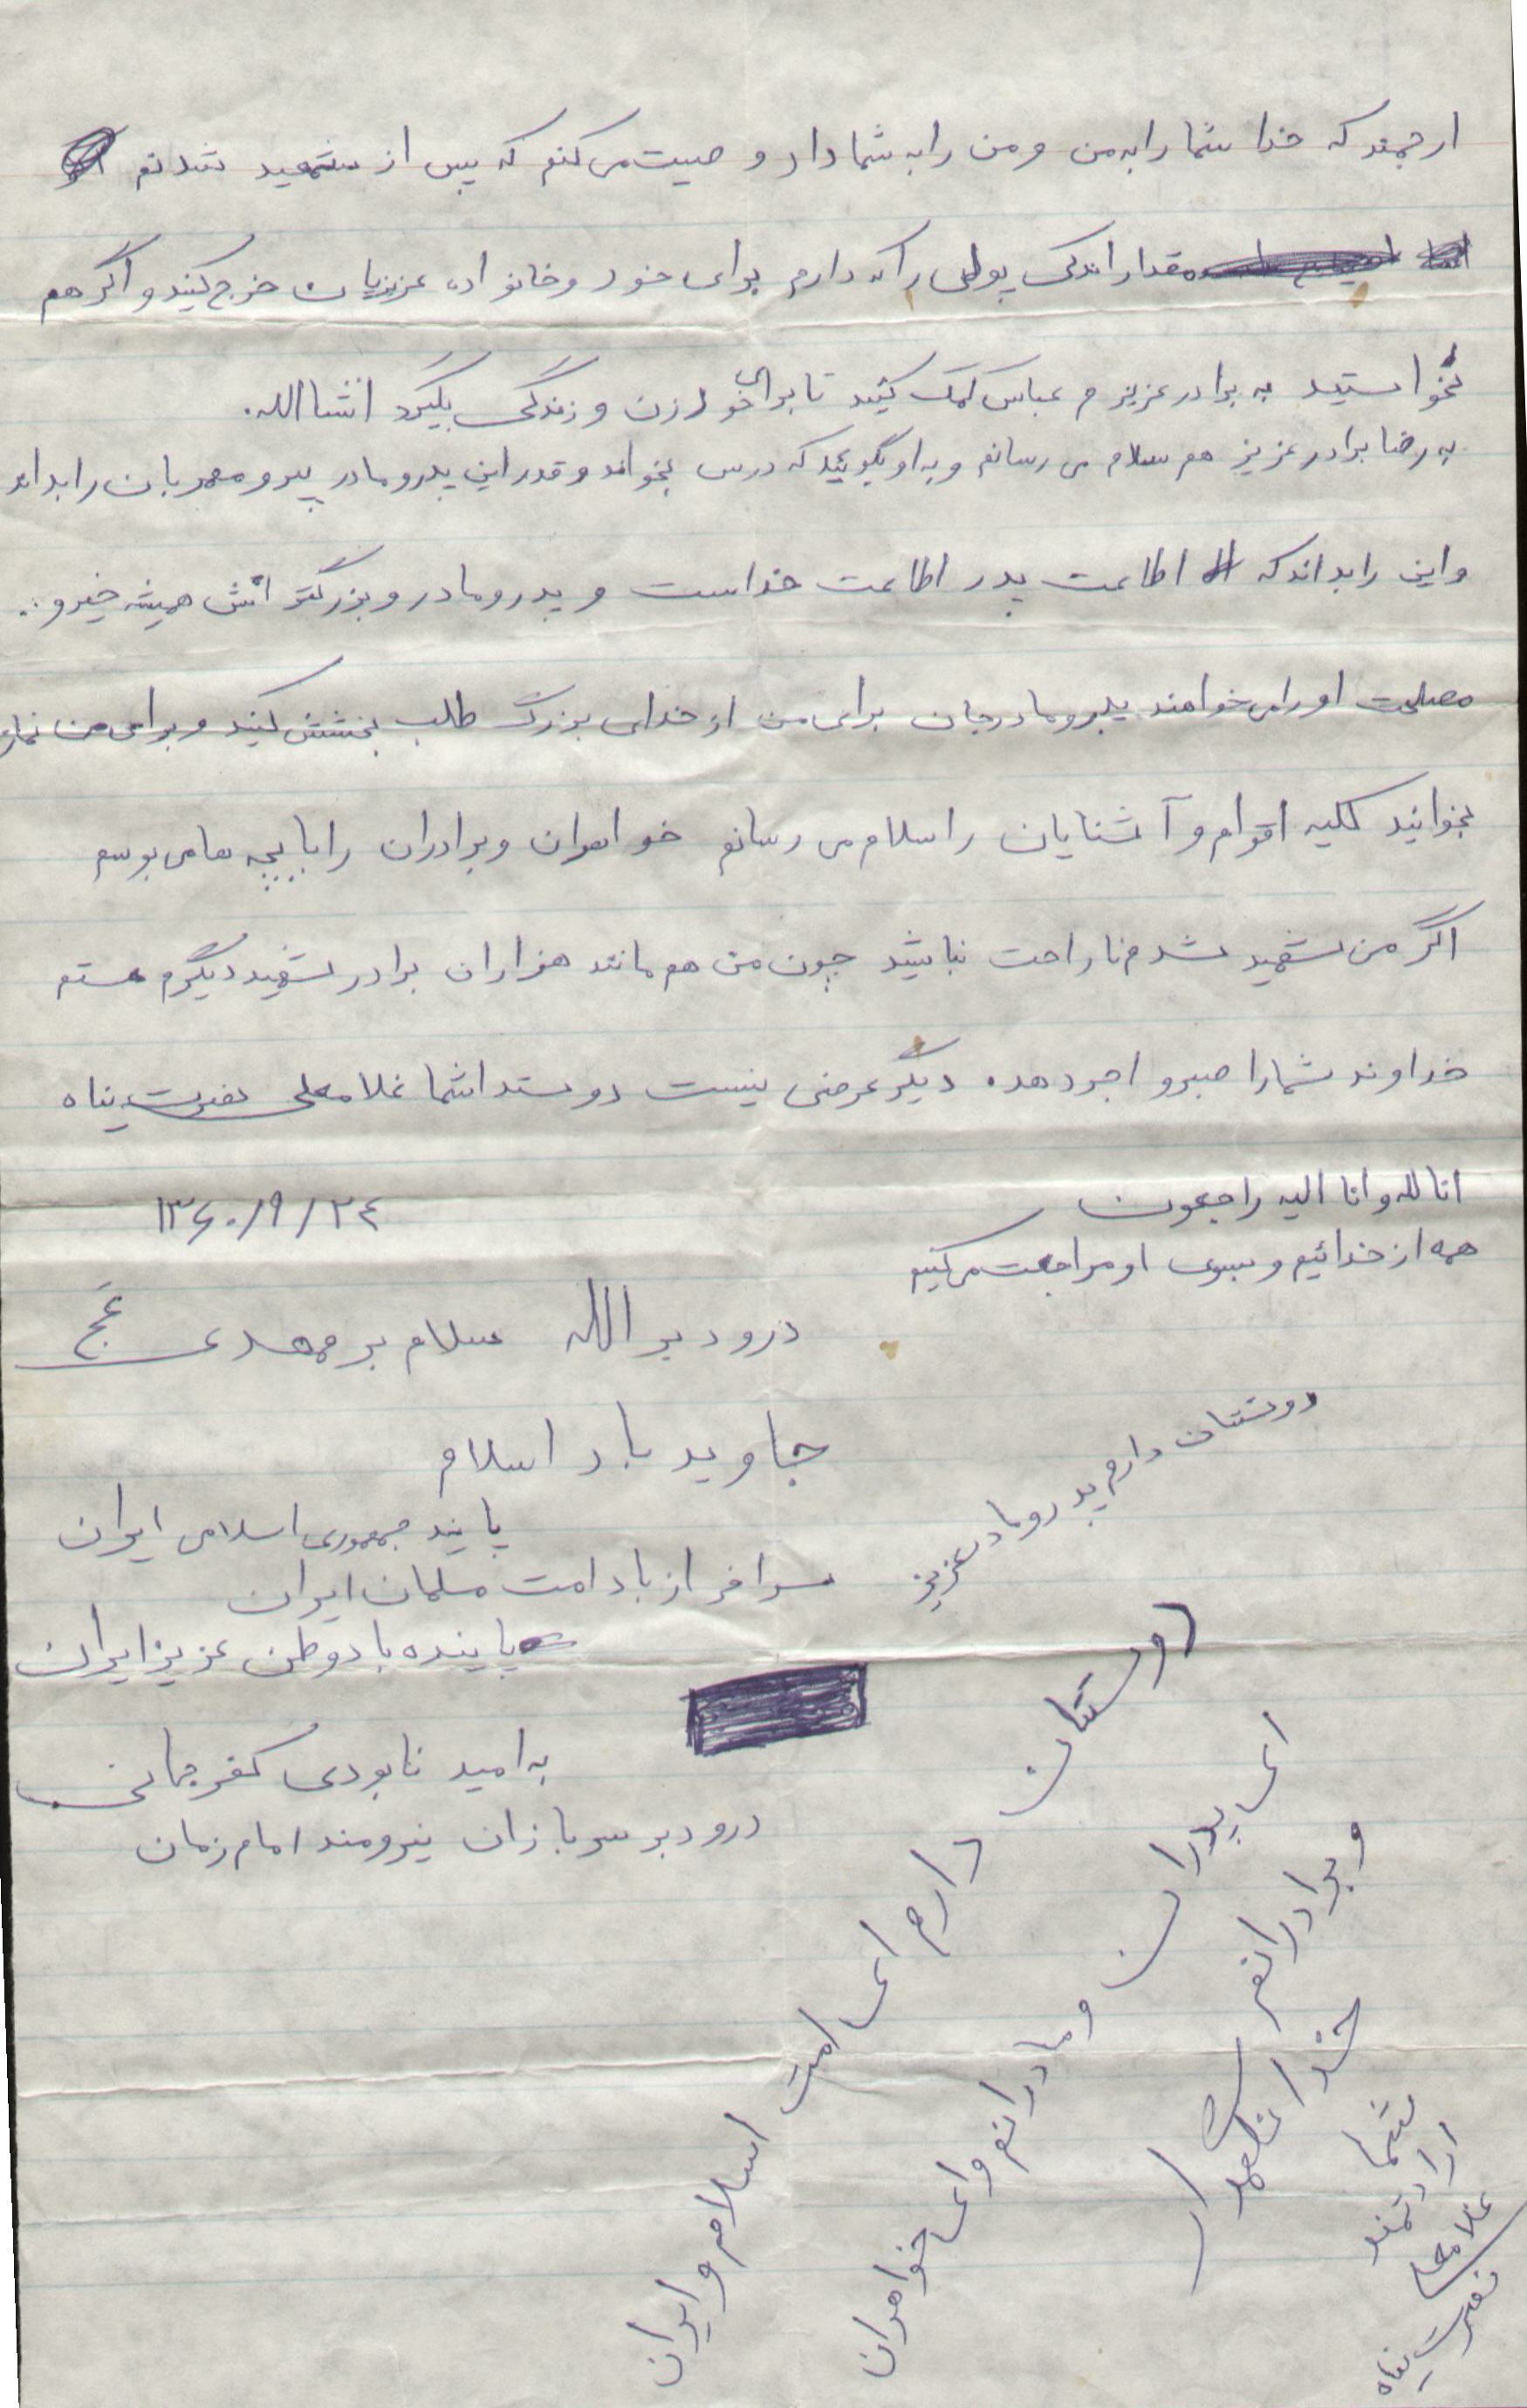 ارجمند که خدا شما را به من و من را به شما داد وصیت می کنم که پس از شهید شدنم
مقدار اندک پولی را که دارم برای خود و خانواده عزیزیان خرج کنید و اگر هم
نخواستید به برادر عزیزم عباس کمک کنید تا برای خود زن و زندگی بگیرد انشاالله.
به رضا برادر عزیز هم سلام می رسانم و به او بگوئید که درس بخواند و قدر این پدر و مادر پیر و مهربان را بداند
و این را بداند که اطاعت پدر اطاعت خداست و پدر و مادر و بزرگتر اش همیشه خیر و ..
مصلحت او را می خواهند پدر و مادر جان برای من از خدای بزرگ طلب بخشش کنید و برای من نماز
بخوانید کلیه اقوام و آشنایان را سلام می رسانم خواهران و برادران را با بچه ها می بوسم
اگر من شهید شدم ناراحت نباشید چون من هم مانند هزاران برادر شهید دیگرم هستم
خداوند شما را صبر و اجر دهد. دیگر عرضی نیست دوستدار شما غلامعلی نصرت پناه
انا لله و انا الیه راجعون
۱۳۶۰/۹/۲۴
همه از خدائیم و بسوی او مراجعت می کنیم
درود بر الله سلام بر مهدی عج
جاوید باد اسلام
پایند جمهوری اسلامی ایران
سرافراز باد امت مسلمان ایران
پاینده باد وطن عزیز ایران
به امید نابودی کفر جهانی
درود بر سربازان نیرومند امام زمان
دوستتان دارم پدر و مادر عزیز
دوستتان دارم ای امت اسلام و ایران
ای پدران و مادرانم و ای خواهران
و برادرانم
خدا نگهدار
شما
ارادتمند
غلامعلی
نصرت پناه